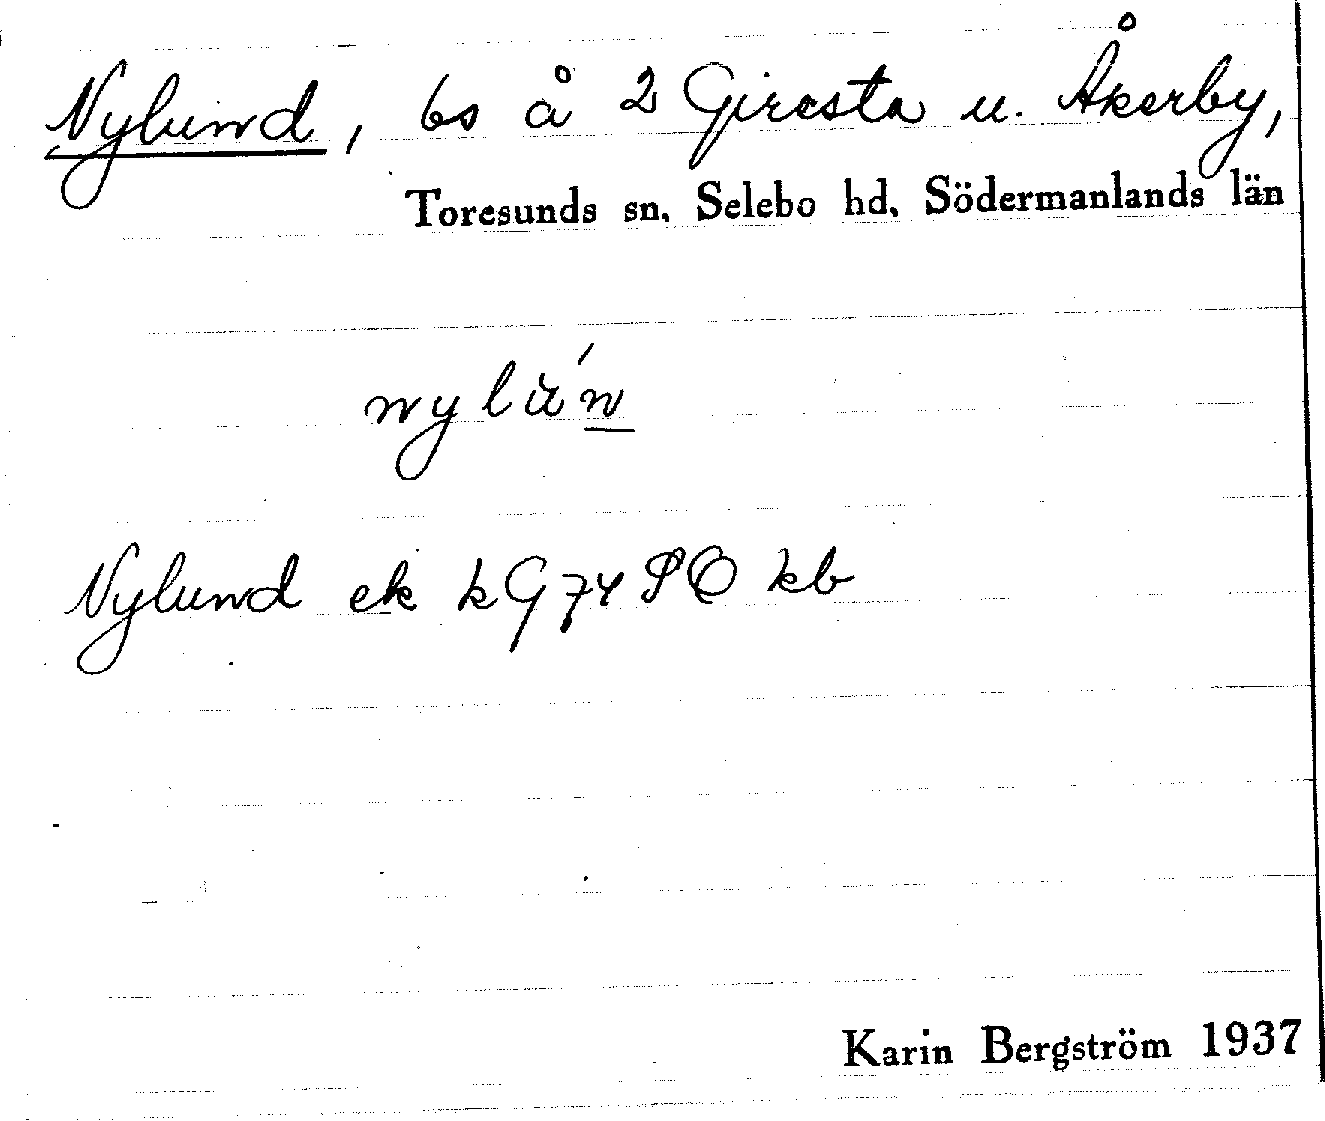 Nylund, bs å 2 Giresta u. Åkerby,
Toresunds sn, Selebo hd, Södermanlands län
nylu̇́n̲
Nylund ek kG74 SO kb
Karin Bergström 1937